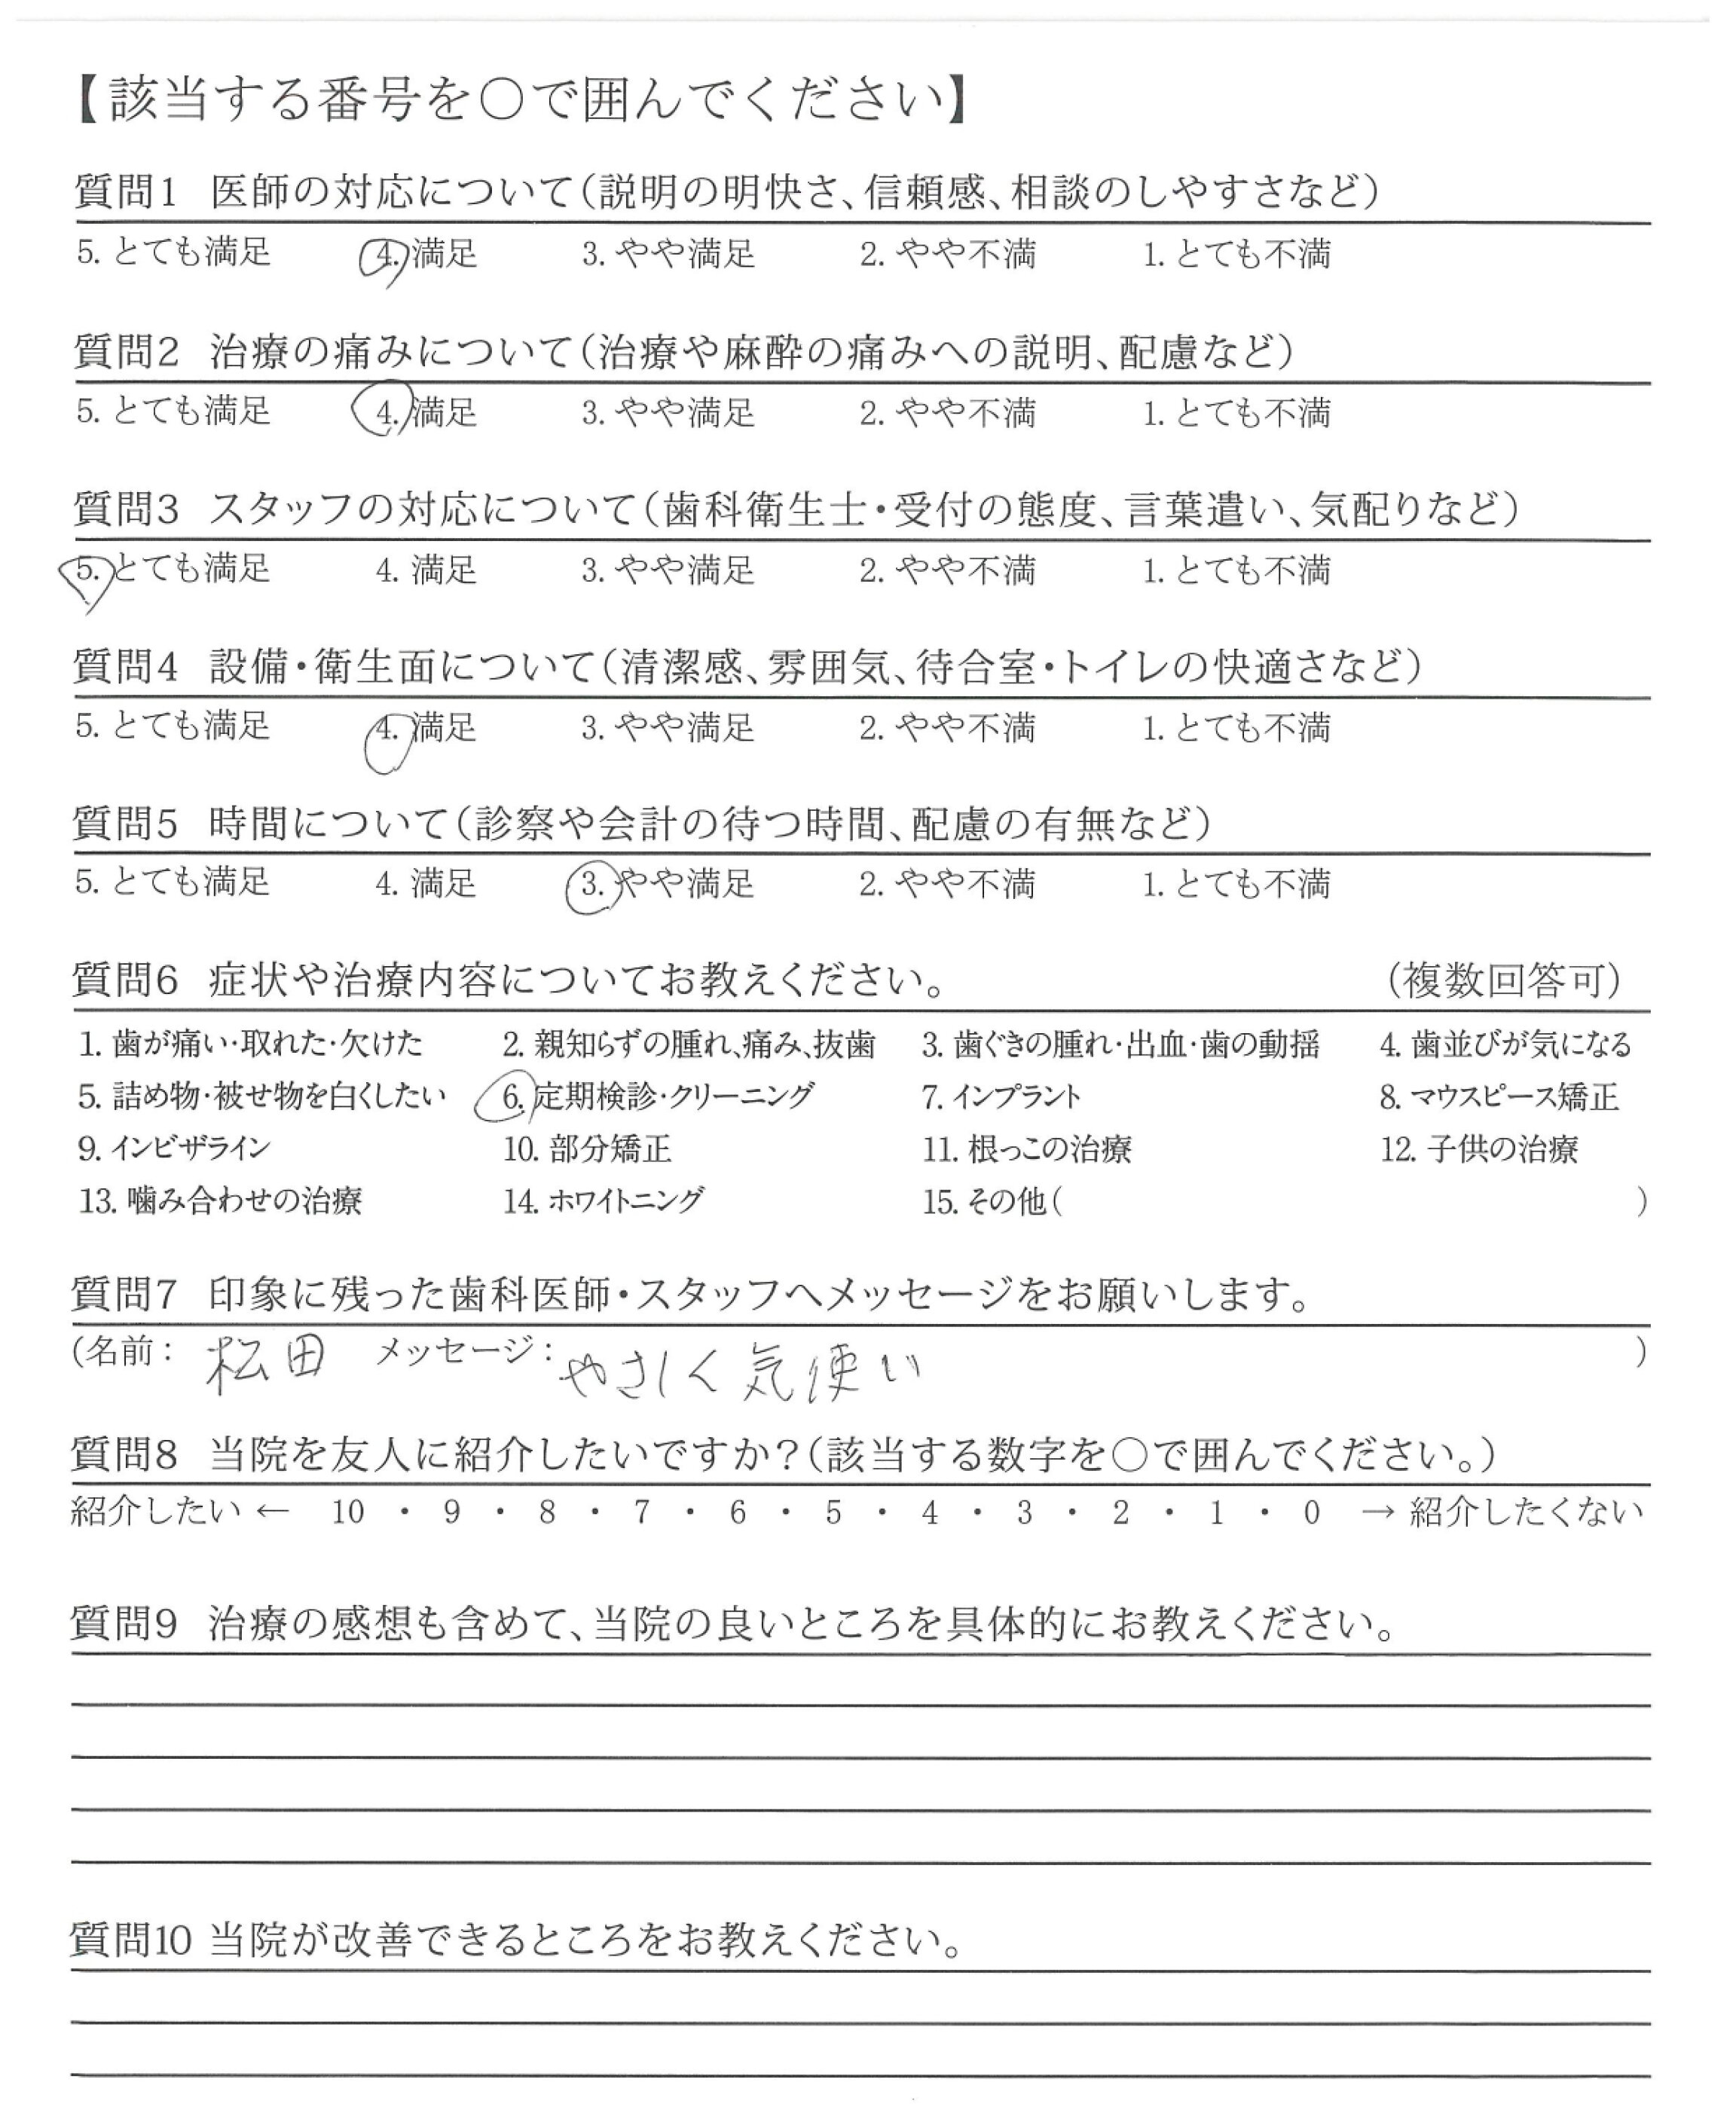 【該当する番号を○で囲んでください】
質問1 医師の対応について(説明の明快さ、信頼感、相談のしやすさなど)
5. とても満足 4. 満足 3. やや満足 2. やや不満 1. とても不満
質問2 治療の痛みについて(治療や麻酔の痛みへの説明、配慮など)
5. とても満足 4. 満足 3. やや満足 2. やや不満 1. とても不満
質問3 スタッフの対応について(歯科衛生士・受付の態度、言葉遣い、気配りなど)
5. とても満足 4. 満足 3. やや満足 2. やや不満 1. とても不満
質問4 設備・衛生面について(清潔感、雰囲気、待合室・トイレの快適さなど)
5. とても満足 4. 満足 3. やや満足 2. やや不満 1. とても不満
質問5 時間について(診察や会計の待つ時間、配慮の有無など)
5. とても満足 4. 満足 3. やや満足 2. やや不満 1. とても不満
質問6 症状や治療内容についてお教えください。 (複数回答可)
1. 歯が痛い・取れた・欠けた 2. 親知らずの腫れ、痛み、抜歯 3. 歯ぐきの腫れ・出血・歯の動揺 4. 歯並びが気になる
5. 詰め物・被せ物を白くしたい 6. 定期検診・クリーニング 7. インプラント 8. マウスピース矯正
9. インビザライン 10. 部分矯正 11. 根っこの治療 12. 子供の治療
13. 噛み合わせの治療 14. ホワイトニング 15. その他( )
質問7 印象に残った歯科医師・スタッフへメッセージをお願いします。
(名前: 松田 メッセージ: やさしく気使い )
質問8 当院を友人に紹介したいですか?(該当する数字を○で囲んでください。)
紹介したい ← 10 ・ 9 ・ 8 ・ 7 ・ 6 ・ 5 ・ 4 ・ 3 ・ 2 ・ 1 ・ 0 → 紹介したくない
質問9 治療の感想も含めて、当院の良いところを具体的にお教えください。
質問10 当院が改善できるところをお教えください。